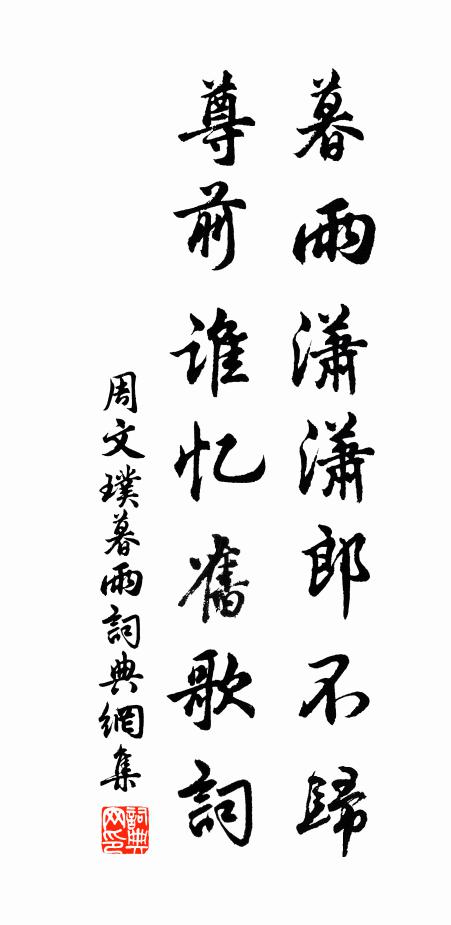 暮雨瀟瀟郎不歸
尊前誰忆舊歌詞
周文璞暮雨詞典網集
詞典网印